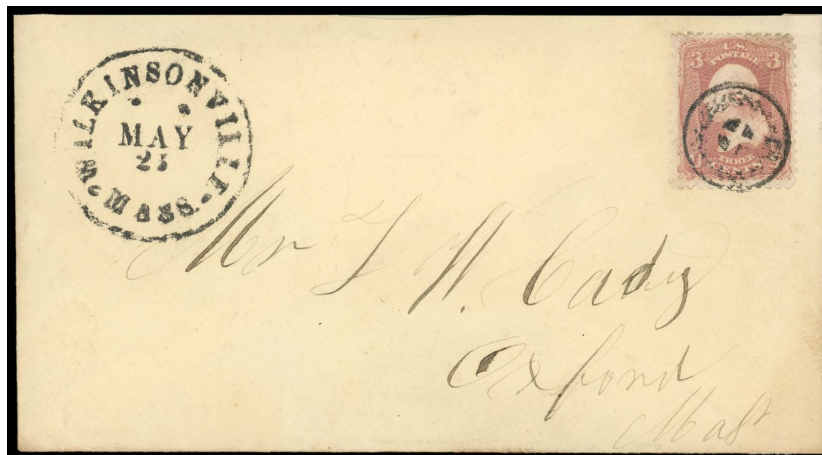 WILKINSONVILLE. MASS.
MAY
25
U.S.
POSTAGE
3 3
THREE
CENTS
Mr L W. Cady
Oxford
Mass